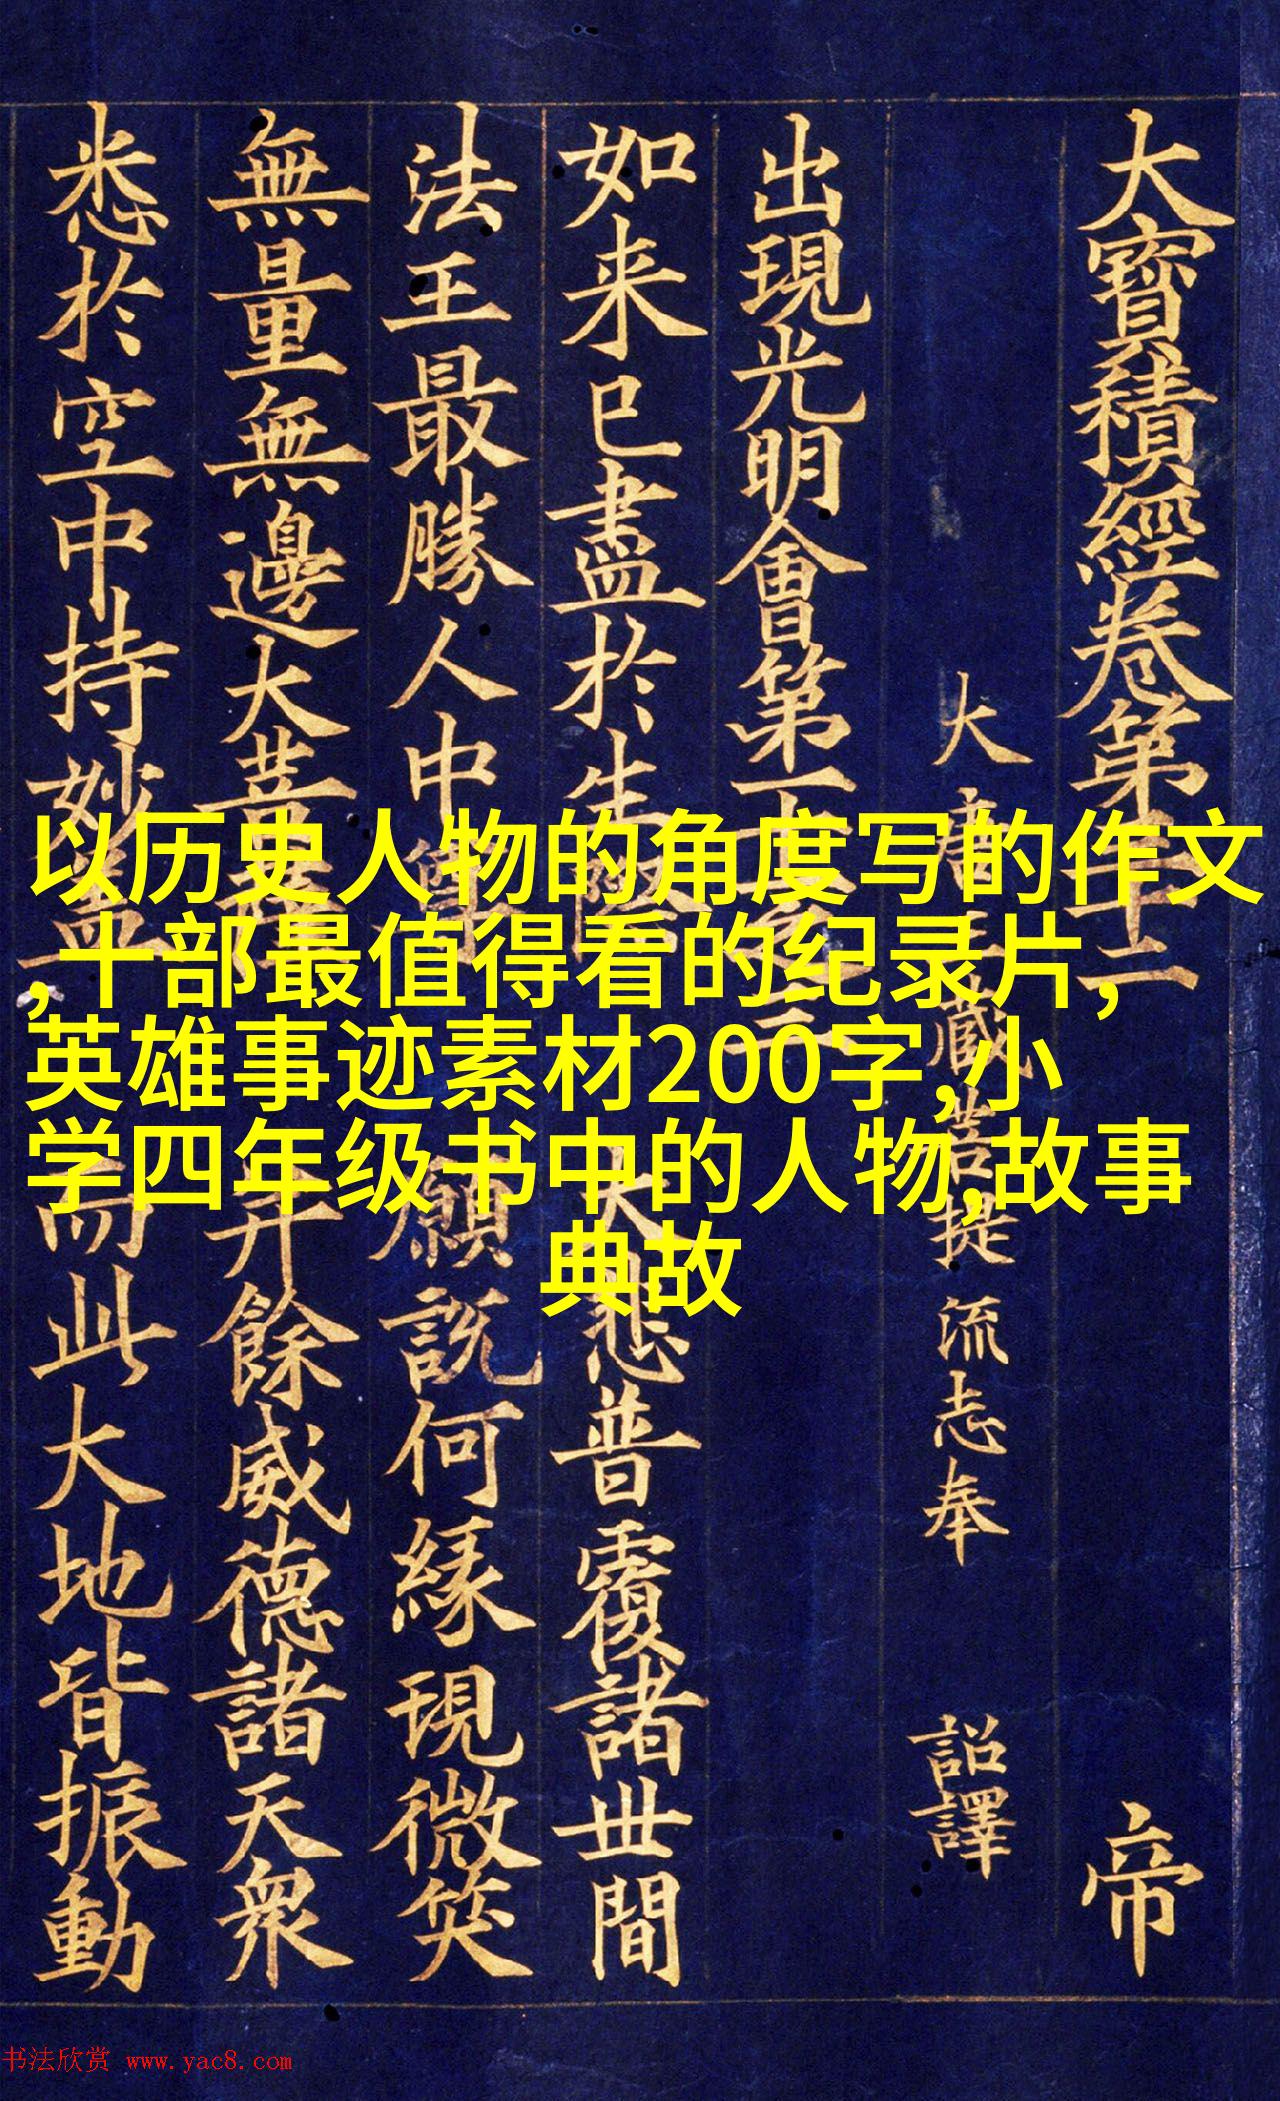 大寶積經卷第三十二 帝
大唐三藏菩提流志奉 詔譯
出現光明會第十一之三
如来已盡於生 大悲普覆諸世間
法王最勝人中尊 願說何縁現微笑
無量無邊大菩薩 并餘威德諸天衆
悉於空中持妙蓋 而此大地皆振動
以历史人物的角度写的作文
,十部最值得看的纪录片,
英雄事迹素材200字,小
学四年级书中的人物,故事
典故
书法欣赏 www.yac8.com